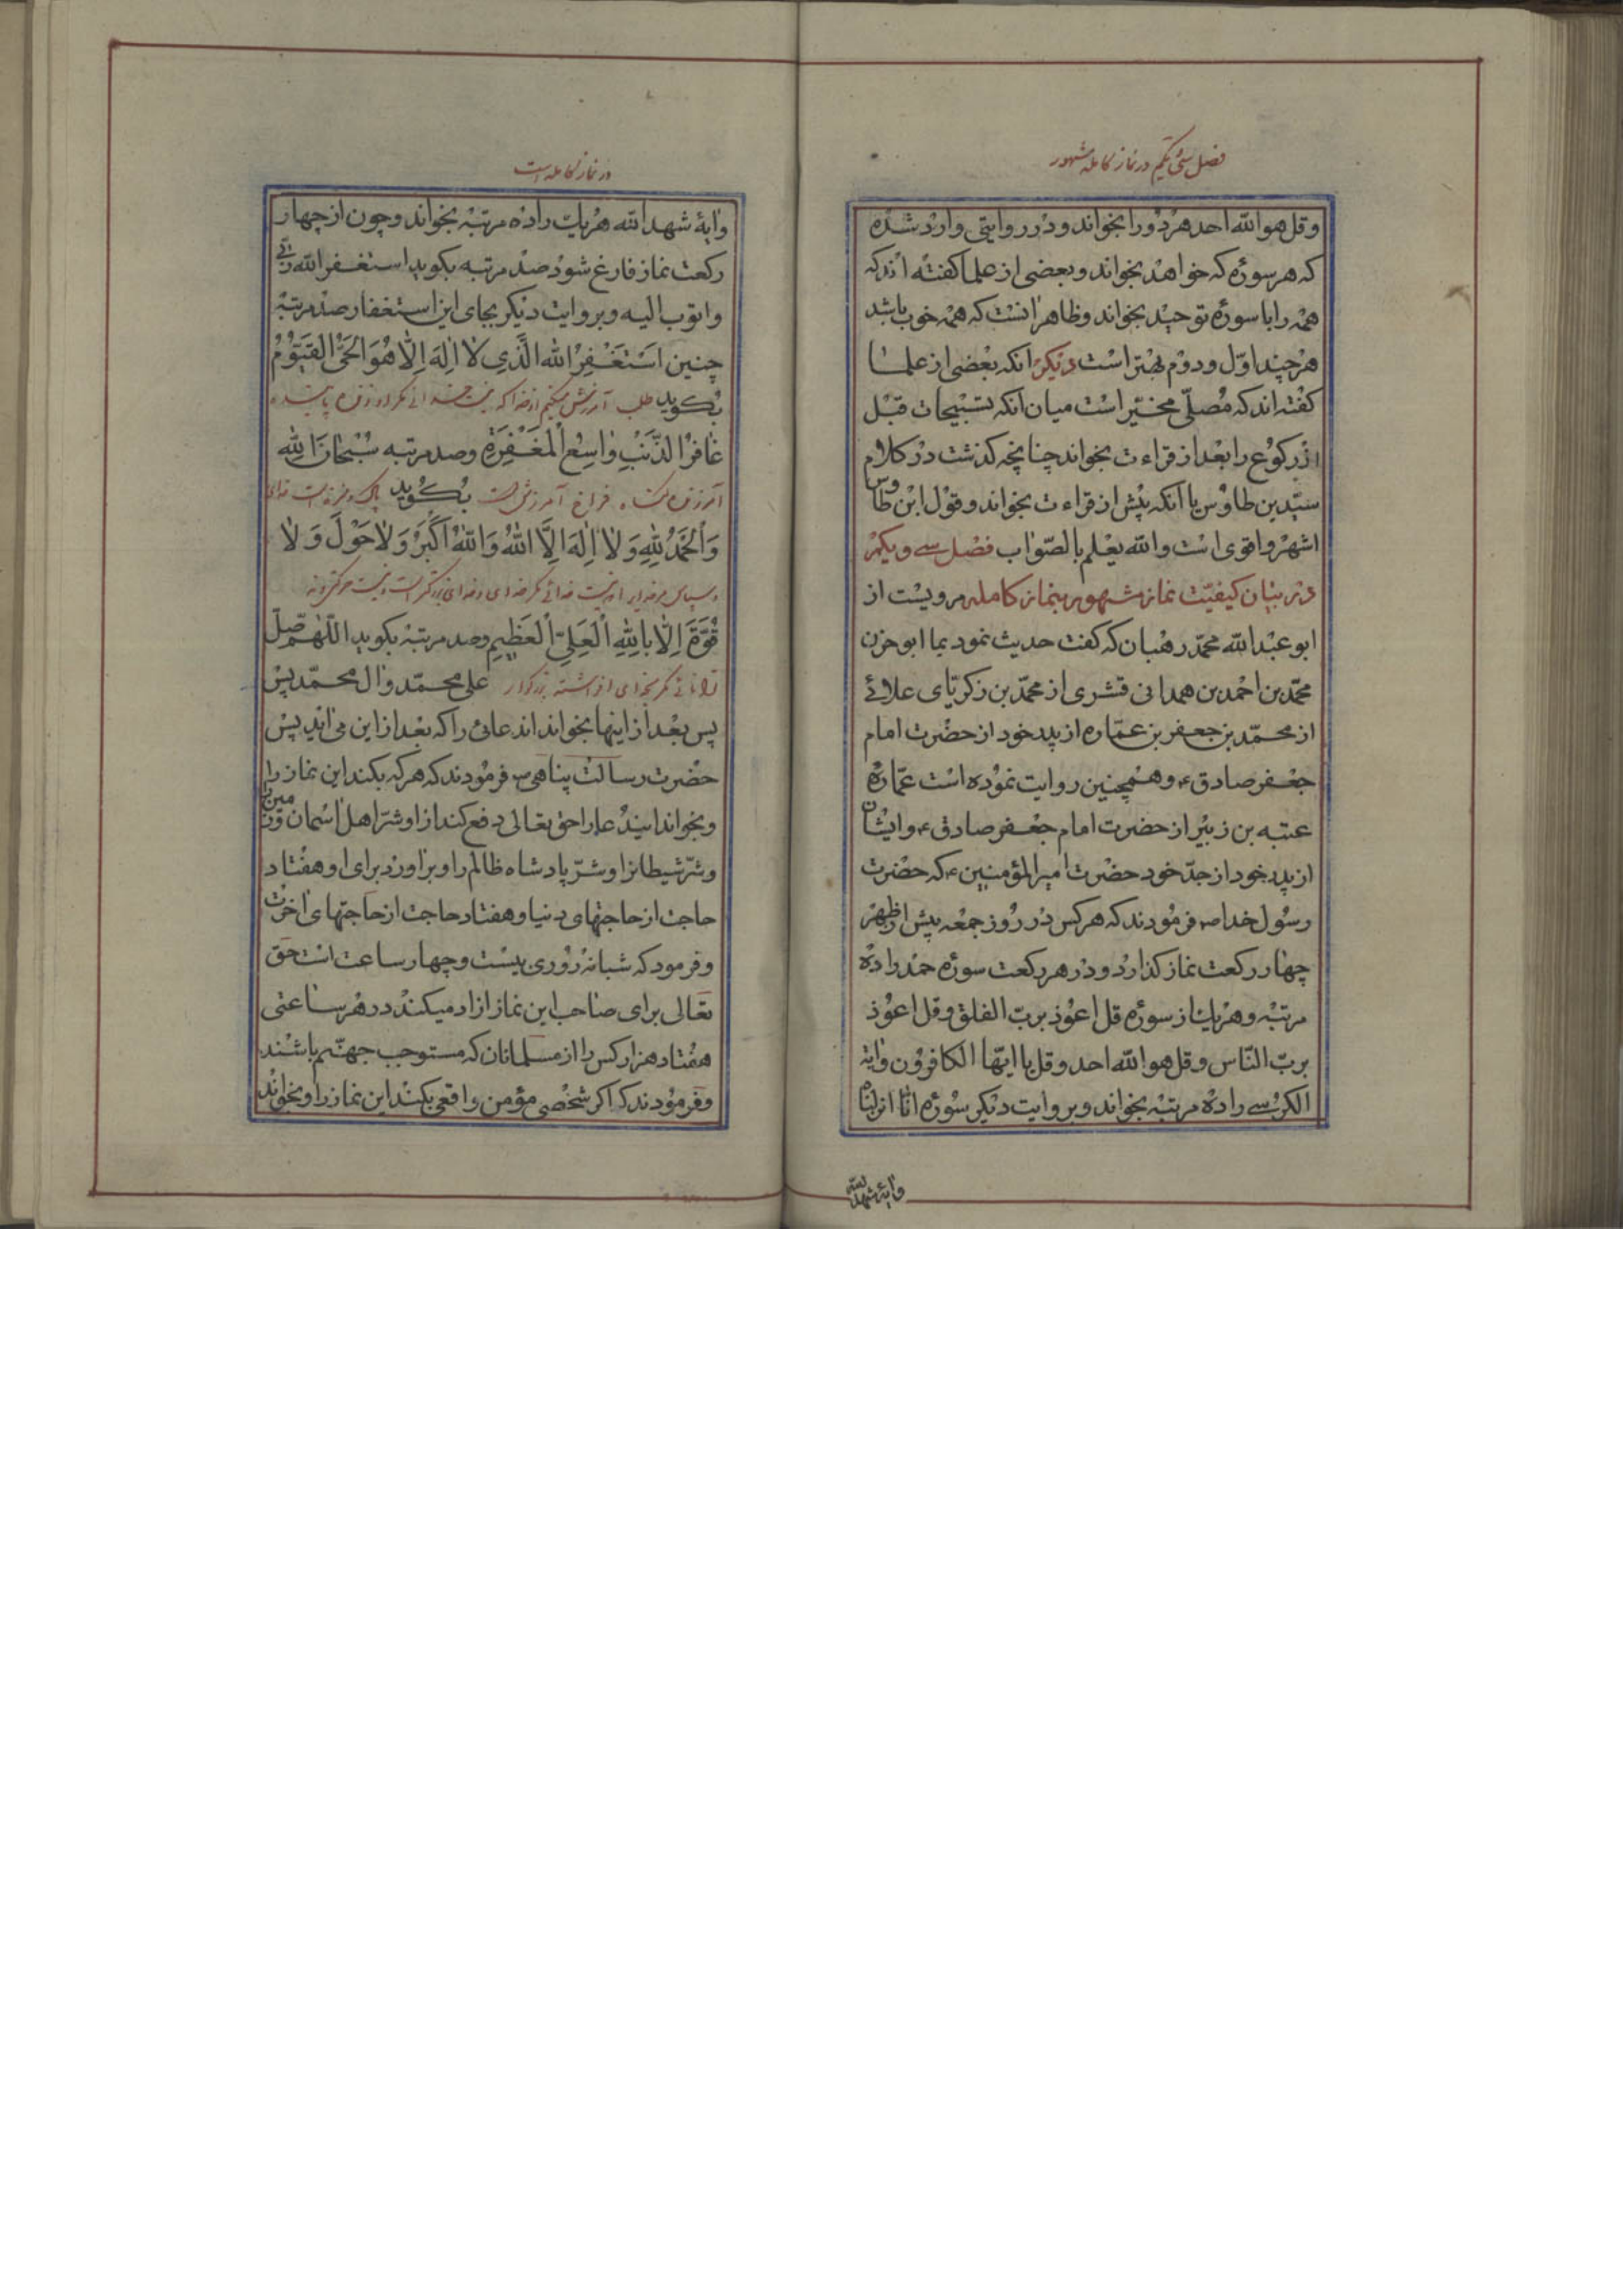 فصل سی یکم در نماز کامله مشهور
وقل هو الله احد هر دو را بخواند و در روایتی وارد شده
که هر سوره که خواهد بخواند و بعضی از علما کفته اند که
همه را با سوره توحید بخواند و ظاهر انست که همه خوب باشد
هر چند اوّل و دوم بهتر است دیکر انکه بعضی از علما
کفته اند که مصلّی مخیّر است میان انکه تسبیحات قبل
از رکوع را بعد از قراءت بخواند چنانچه کذشت در کلام
سیّد بن طاوس یا انکه پیش از قراءت بخواند و قول ابن طاوس
اشهر و اقوی است والله یعلم بالصّواب فصل سے و یکم
در بیان کیفیّت نماز مشهور بنماز کامله مرویست از
ابو عبد الله محمّد رهبان که کفت حدیث نمود بما ابو حزن
محمّد بن احمد بن همدانی قشری از محمّد بن زکریّای علائے
از محمّد بن جعفر بن عمّاره از پدر خود از حضرت امام
جعفر صادق ع و همچنین روایت نموده است عمّاره
عتبه بن زبیر از حضرت امام جعفر صادق ع و ایشان
از پدر خود از جدّ خود حضرت امیر المؤمنین ع که حضرت
رسول خدا ص فرمودند که هر کس در روز جمعه پیش از ظهر
چهار رکعت نماز کذارد و در هر رکعت سوره حمد را ده
مرتبه و هر یک از سوره قل اعوذ بربّ الفلق و قل اعوذ
بربّ النّاس و قل هو الله احد و قل یا ایّها الکافرون و ایة
الکرسے را ده مرتبه بخواند و بروایت دیکر سوره انّا انزلناه
و ایهٔ شهد الله
در نماز کامله است
و ایهٔ شهد الله هر یک را ده مرتبه بخواند و چون از چهار
رکعت نماز فارغ شود صد مرتبه بکوید استغفر الله ربّی
و اتوب الیه و بروایت دیکر بجای این استغفار صد مرتبه
چنین اَسْتَغْفِرُ اللهَ الَّذِی لا اِلٰهَ اِلّا هُوَ الْحَیُّ الْقَیّوُمُ
بکوید طلب آمرزش میکنم از خدا که نیست خدائی مکر او زنده پاینده
غافِرُ الذَّنْبِ واسِعُ الْمَغْفِرَةِ و صد مرتبه سُبْحانَ اللهِ
آمرزنده کناه فراخ آمرزش است بکوید پاک و منزه است خدای
وَالْحَمْدُ لِلّهِ وَلا اِلٰهَ اِلَّا اللهُ وَاللهُ اَکْبَرُ وَلا حَوْلَ وَلا
و سپاس مر خدایرا و نیست خدائے مکر خدای و خدای بزرکتر است و نیست
قُوَّةَ اِلّا بِاللهِ الْعَلِیِّ الْعَظیمِ و صد مرتبه بکوید اللّهمّ صلّ
توانائی مکر بخدای علی محمّد و ال محمّد پس
پس بعد از اینها بخواند ان دعائی را که بعد از این می اید پس
حضرت رسالت پناهی ص فرمودند که هر که بکند این نماز را
و بخواند این دعا را حق تعالی دفع کند از او شرّ اهل اسمان و زمین را
و شرّ شیطانرا و شرّ پادشاه ظالم را و براورد برای او هفتاد
حاجت از حاجتهای دنیا و هفتاد حاجت از حاجتهای اخرت
و فرمود که شبانه روزی بیست و چهار ساعت است حق
تعالی برای صاحب این نماز ازاد میکند در هر ساعتی
هفتاد هزار کس را از مسلمانان که مستوجب جهنّم باشند
و فرمودند که اکر شخصی مؤمن واقعی بکند این نماز را و بخواند